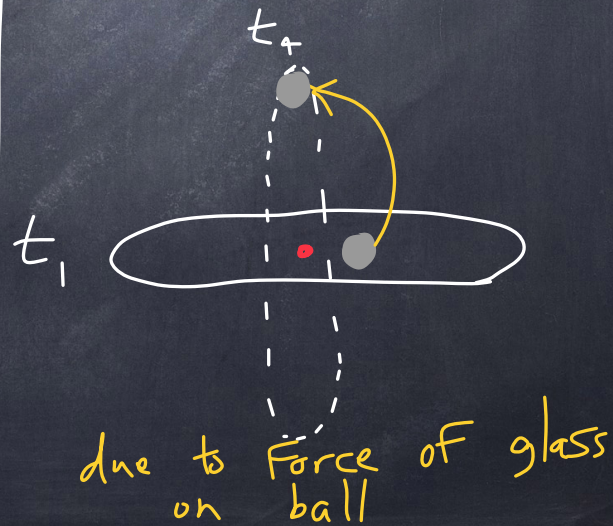 t₄
t₁
due to Force of glass
on ball